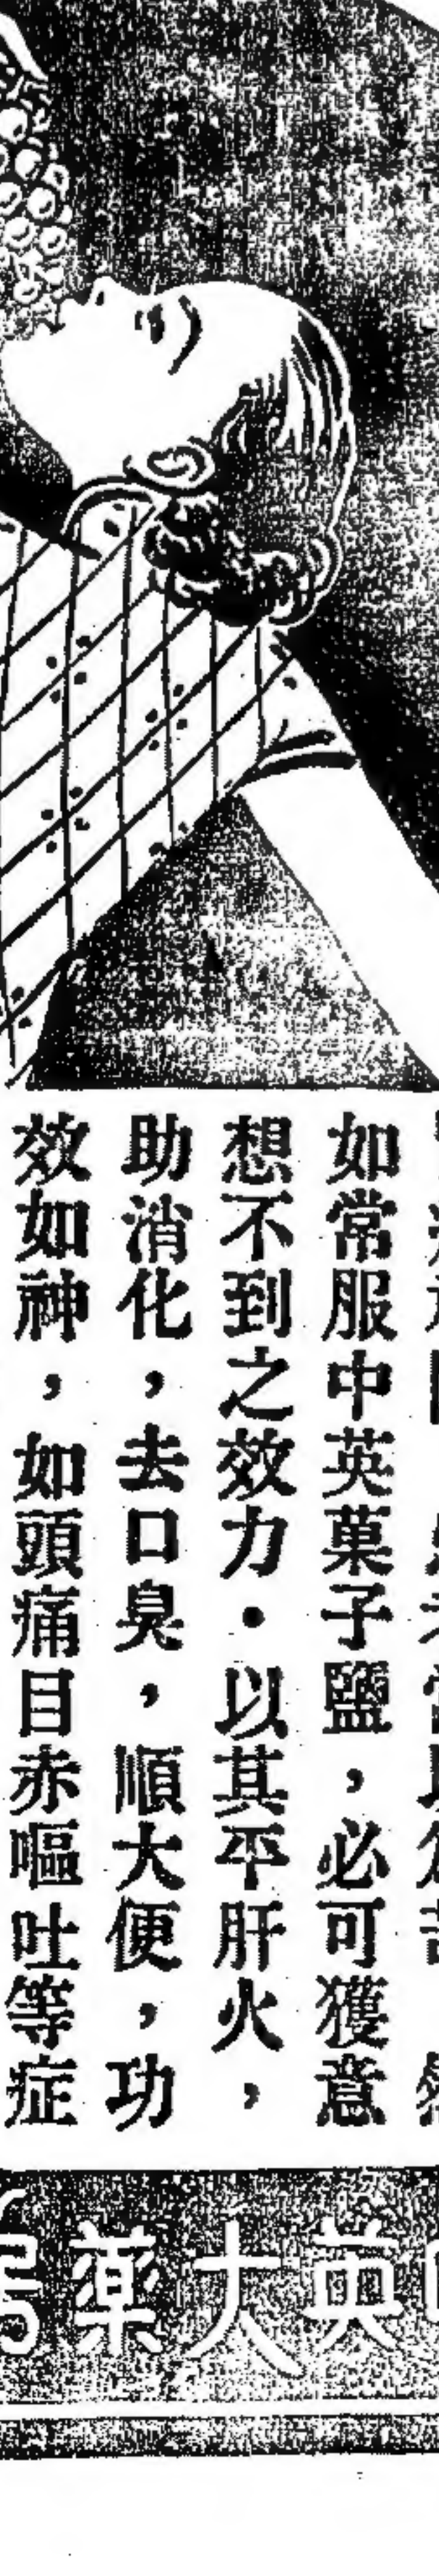 如常服中英菓子鹽，必可獲意
想不到之效力・以其平肝火，
助消化，去口臭，順大便，功
效如神，如頭痛目赤嘔吐等症
英大藥房